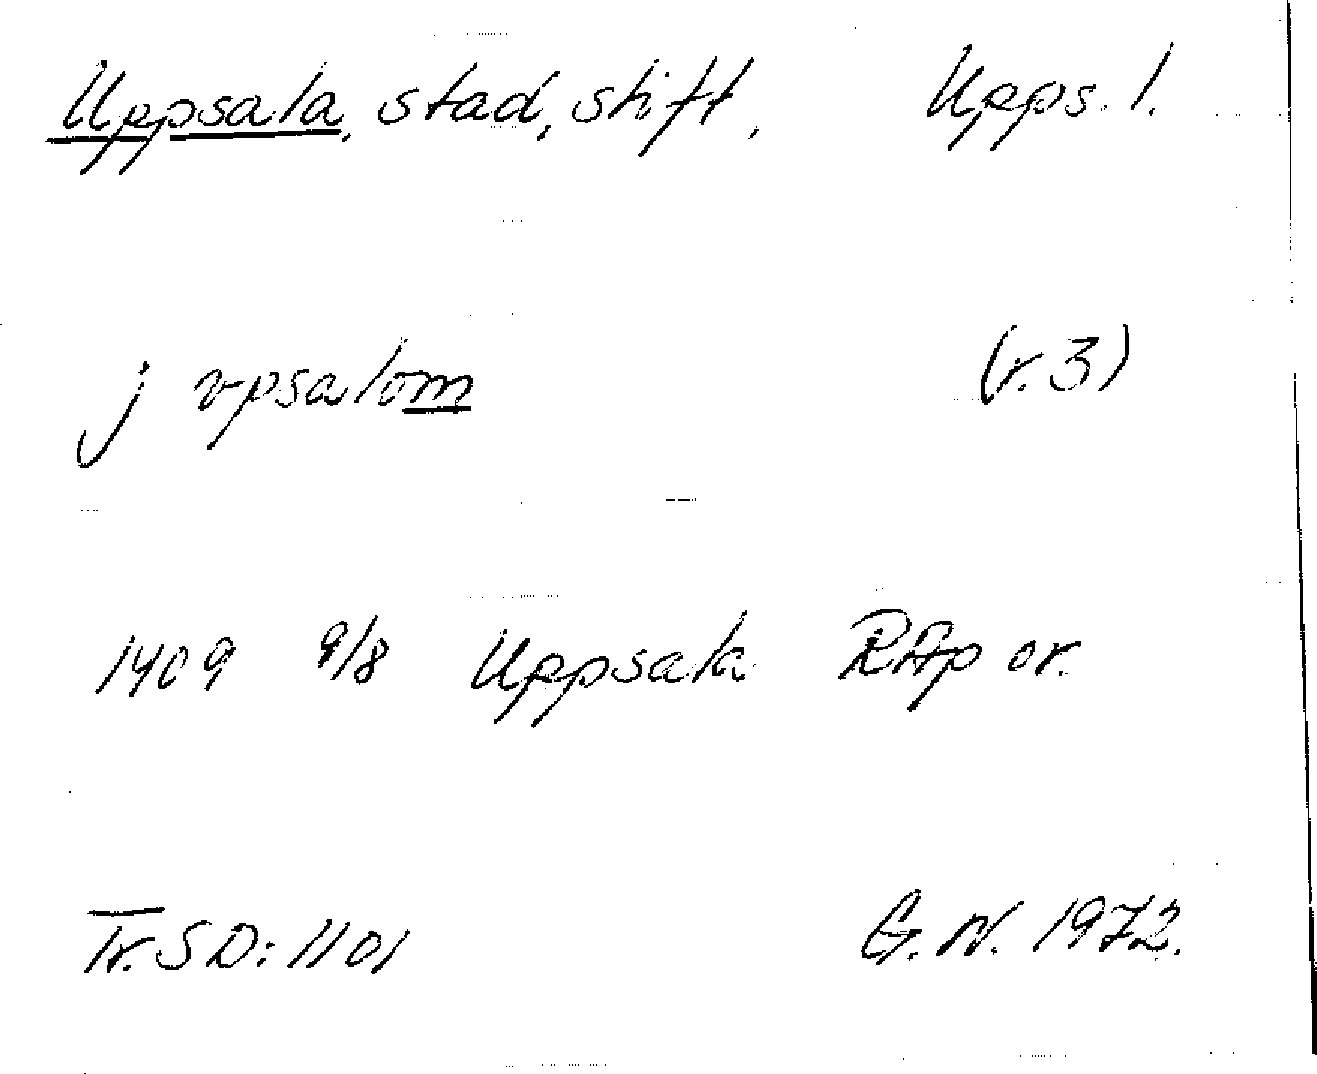 Uppsala, stad, stift, Upps. l.
j vpsalom (r. 3)
1409 9/8 Uppsala RAp or.
Tr. SD: 1101 G. N. 1972.